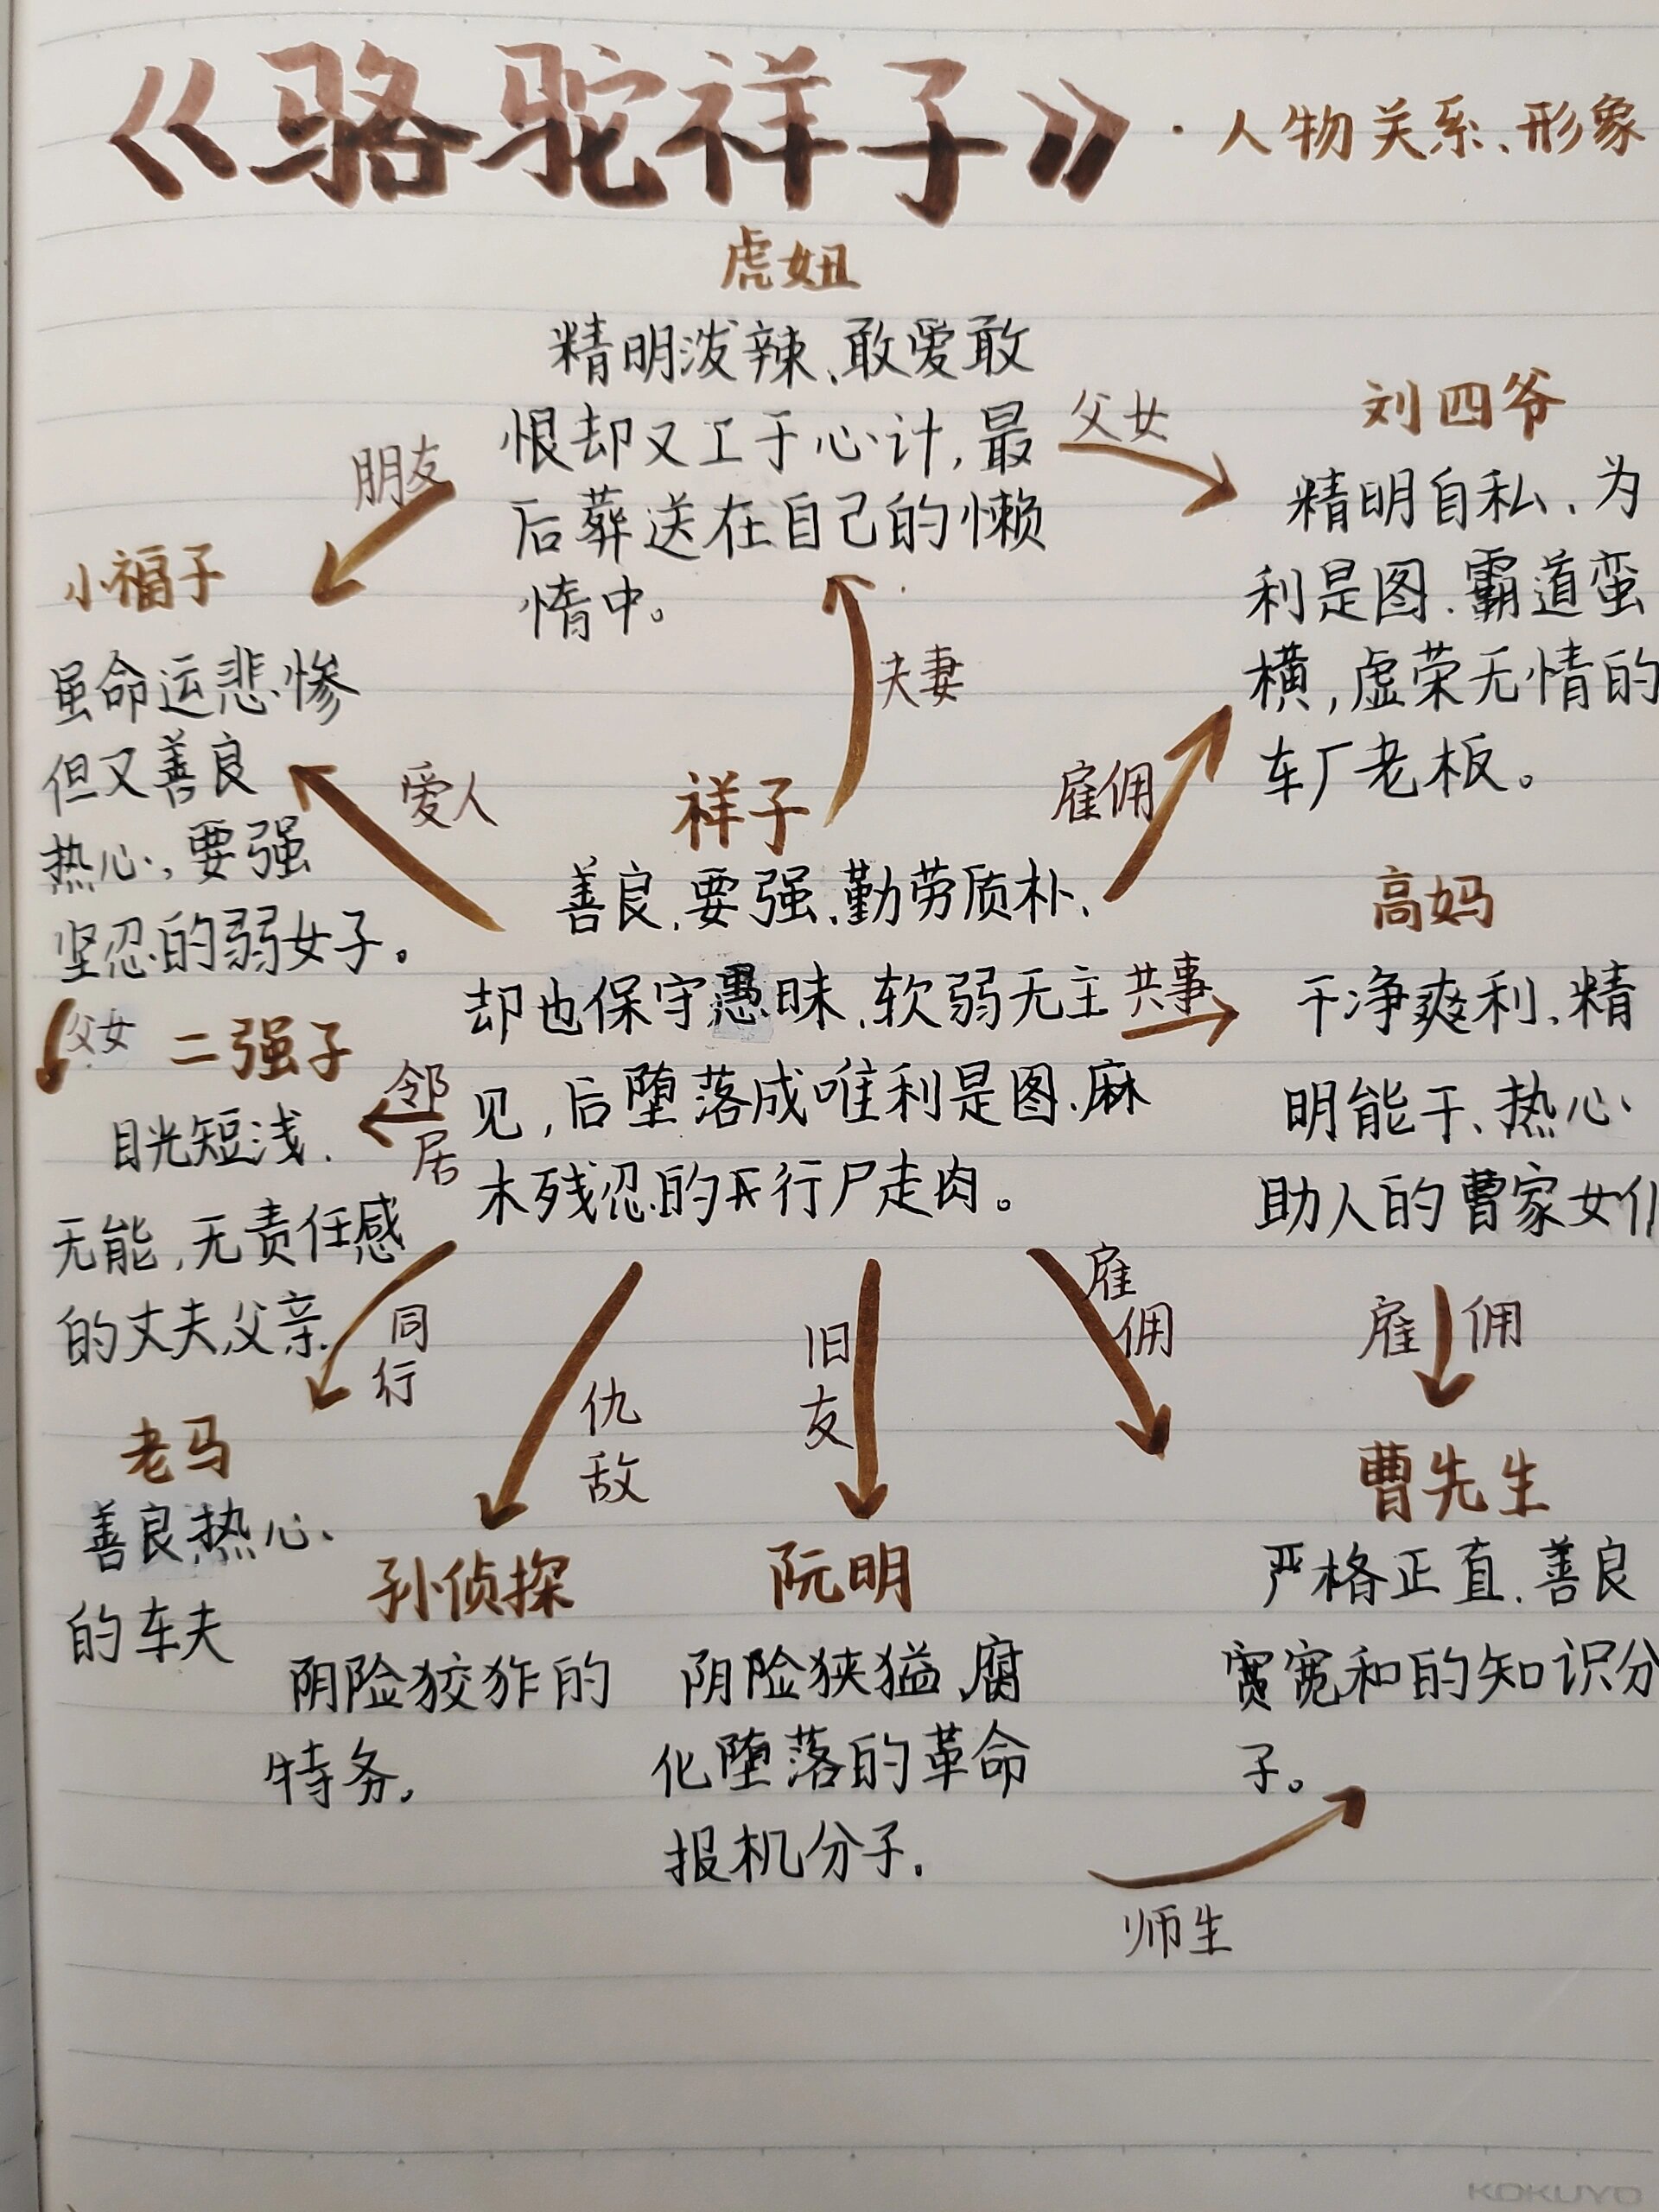 《骆驼祥子》·人物关系、形象
虎妞
精明泼辣、敢爱敢
恨却又工于心计,最
后葬送在自己的懒
惰中。
父女
刘四爷
精明自私、为
利是图、霸道蛮
横,虚荣无情的
车厂老板。
朋友
小福子
虽命运悲惨
但又善良
热心,要强
坚忍的弱女子。
夫妻
爱人
雇佣
祥子
善良、要强、勤劳质朴、
却也保守愚昧、软弱无主
见,后堕落成唯利是图、麻
木残忍的行尸走肉。
共事
高妈
干净爽利、精
明能干、热心
助人的曹家女
父女
二强子
目光短浅、
无能,无责任感
的丈夫、父亲.
邻
居
同
行
仇
敌
旧
友
雇
佣
雇佣
老马
善良热心、
的车夫
孙侦探
阴险狡诈的
特务.
阮明
阴险狭猛、腐
化堕落的革命
报机分子.
曹先生
严格正直、善良
宽和的知识分
子。
师生
KOKUYO